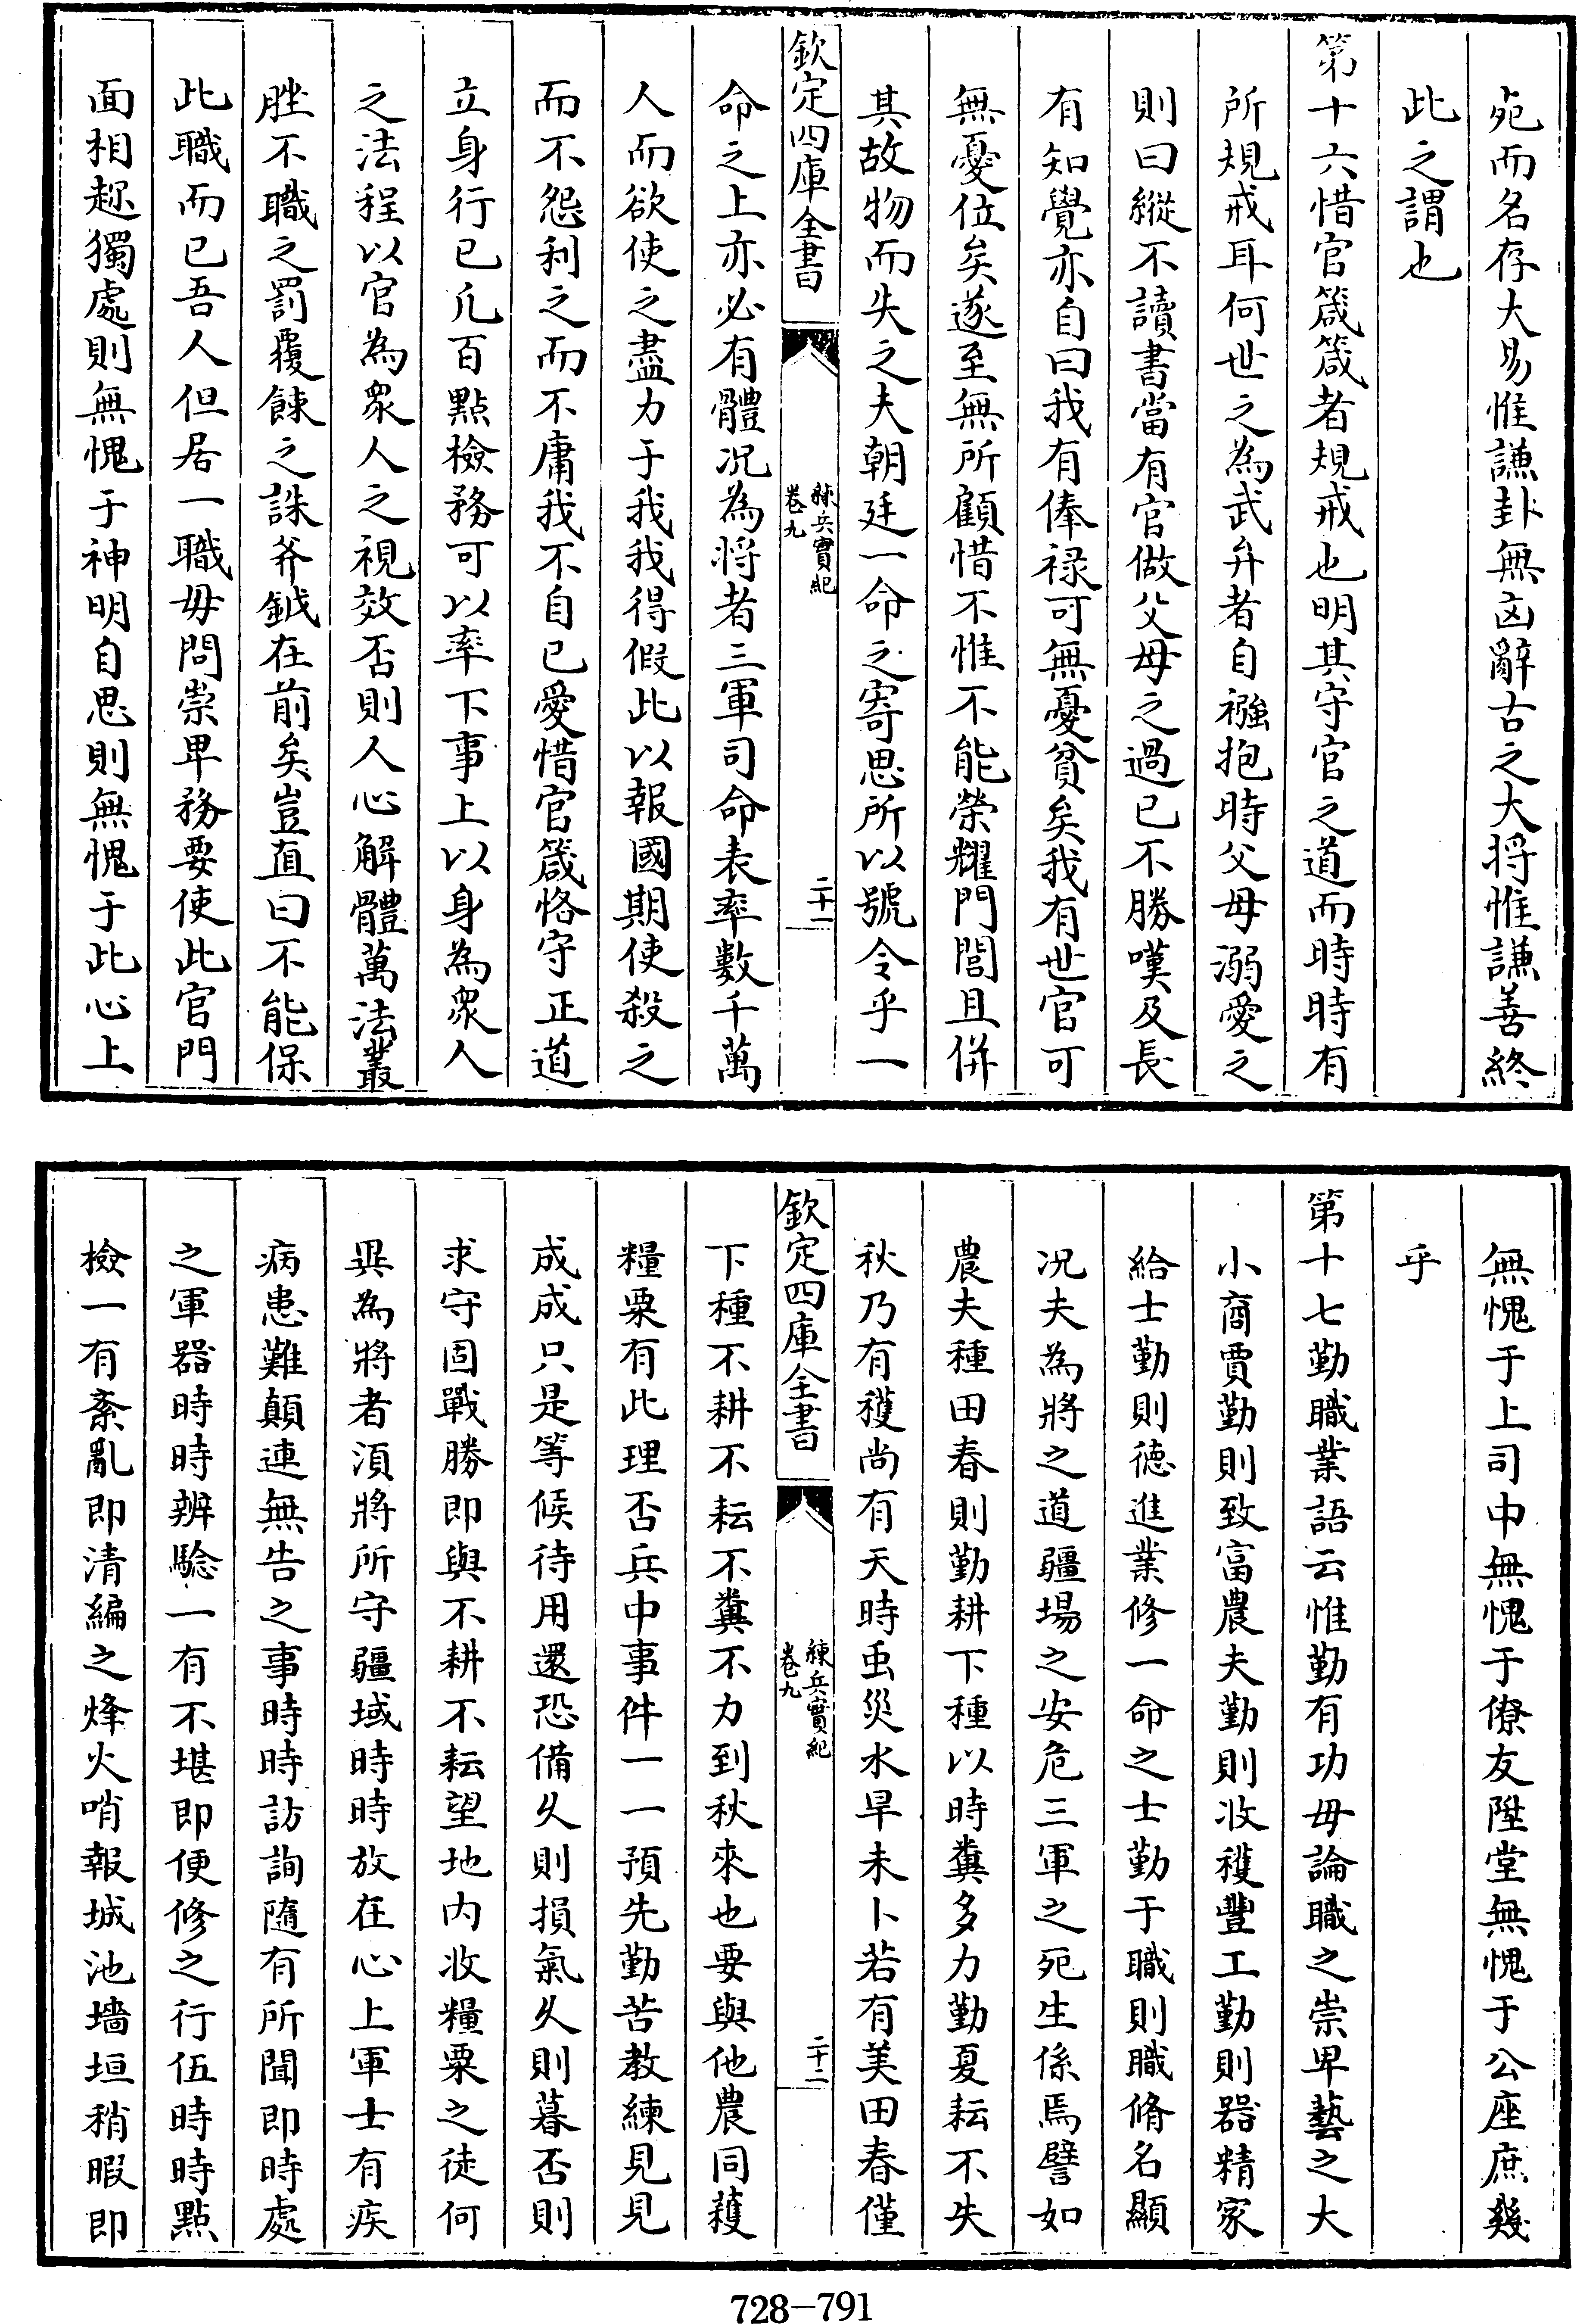 宛而名存大易惟謙卦無凶辭古之大将惟謙善終
此之謂也
第十六惜官箴箴者規戒也明其守官之道而時時有
所規戒耳何世之為武弁者自襁抱時父母溺愛之
則曰縱不讀書當有官做父母之過已不勝嘆及長
有知覺亦自曰我有俸禄可無憂貧矣我有世官可
無憂位矣遂至無所顧惜不惟不能榮耀門閭且併
其故物而失之夫朝廷一命之寄思所以號令乎一
欽定四庫全書
練兵實紀
卷九
二十一
命之上亦必有體况為将者三軍司命表率數千萬
人而欲使之盡力于我我得假此以報國期使殺之
而不怨利之而不庸我不自已愛惜官箴恪守正道
立身行已凡百點檢務可以率下事上以身為衆人
之法程以官為衆人之視效否則人心解體萬法叢
脞不職之罰覆餗之誅斧鉞在前矣豈直曰不能保
此職而已吾人但居一職毋問崇卑務要使此官門
面相趂獨處則無愧于神明自思則無愧于此心上
無愧于上司中無愧于僚友陞堂無愧于公座庶幾
乎
第十七勤職業語云惟勤有功毋論職之崇卑藝之大
小商賈勤則致富農夫勤則收穫豐工勤則器精家
給士勤則德進業修一命之士勤于職則職脩名顯
况夫為將之道疆場之安危三軍之死生係焉譬如
農夫種田春則勤耕下種以時糞多力勤夏耘不失
秋乃有穫尚有天時虫災水旱未卜若有美田春僅
欽定四庫全書
練兵實紀
卷九
二十二
下種不耕不耘不糞不力到秋來也要與他農同蒦
糧粟有此理否兵中事件一一預先勤苦教練見見
成成只是等候待用還恐備久則損氣久則暮否則
求守固戰勝即與不耕不耘望地内收糧粟之徒何
異為將者須將所守疆域時時放在心上軍士有疾
病患難顛連無告之事時時訪詢隨有所聞即時處
之軍器時時辨驗一有不堪即便修之行伍時時點
檢一有紊亂即清編之烽火哨報城池墻垣稍暇即
728-791